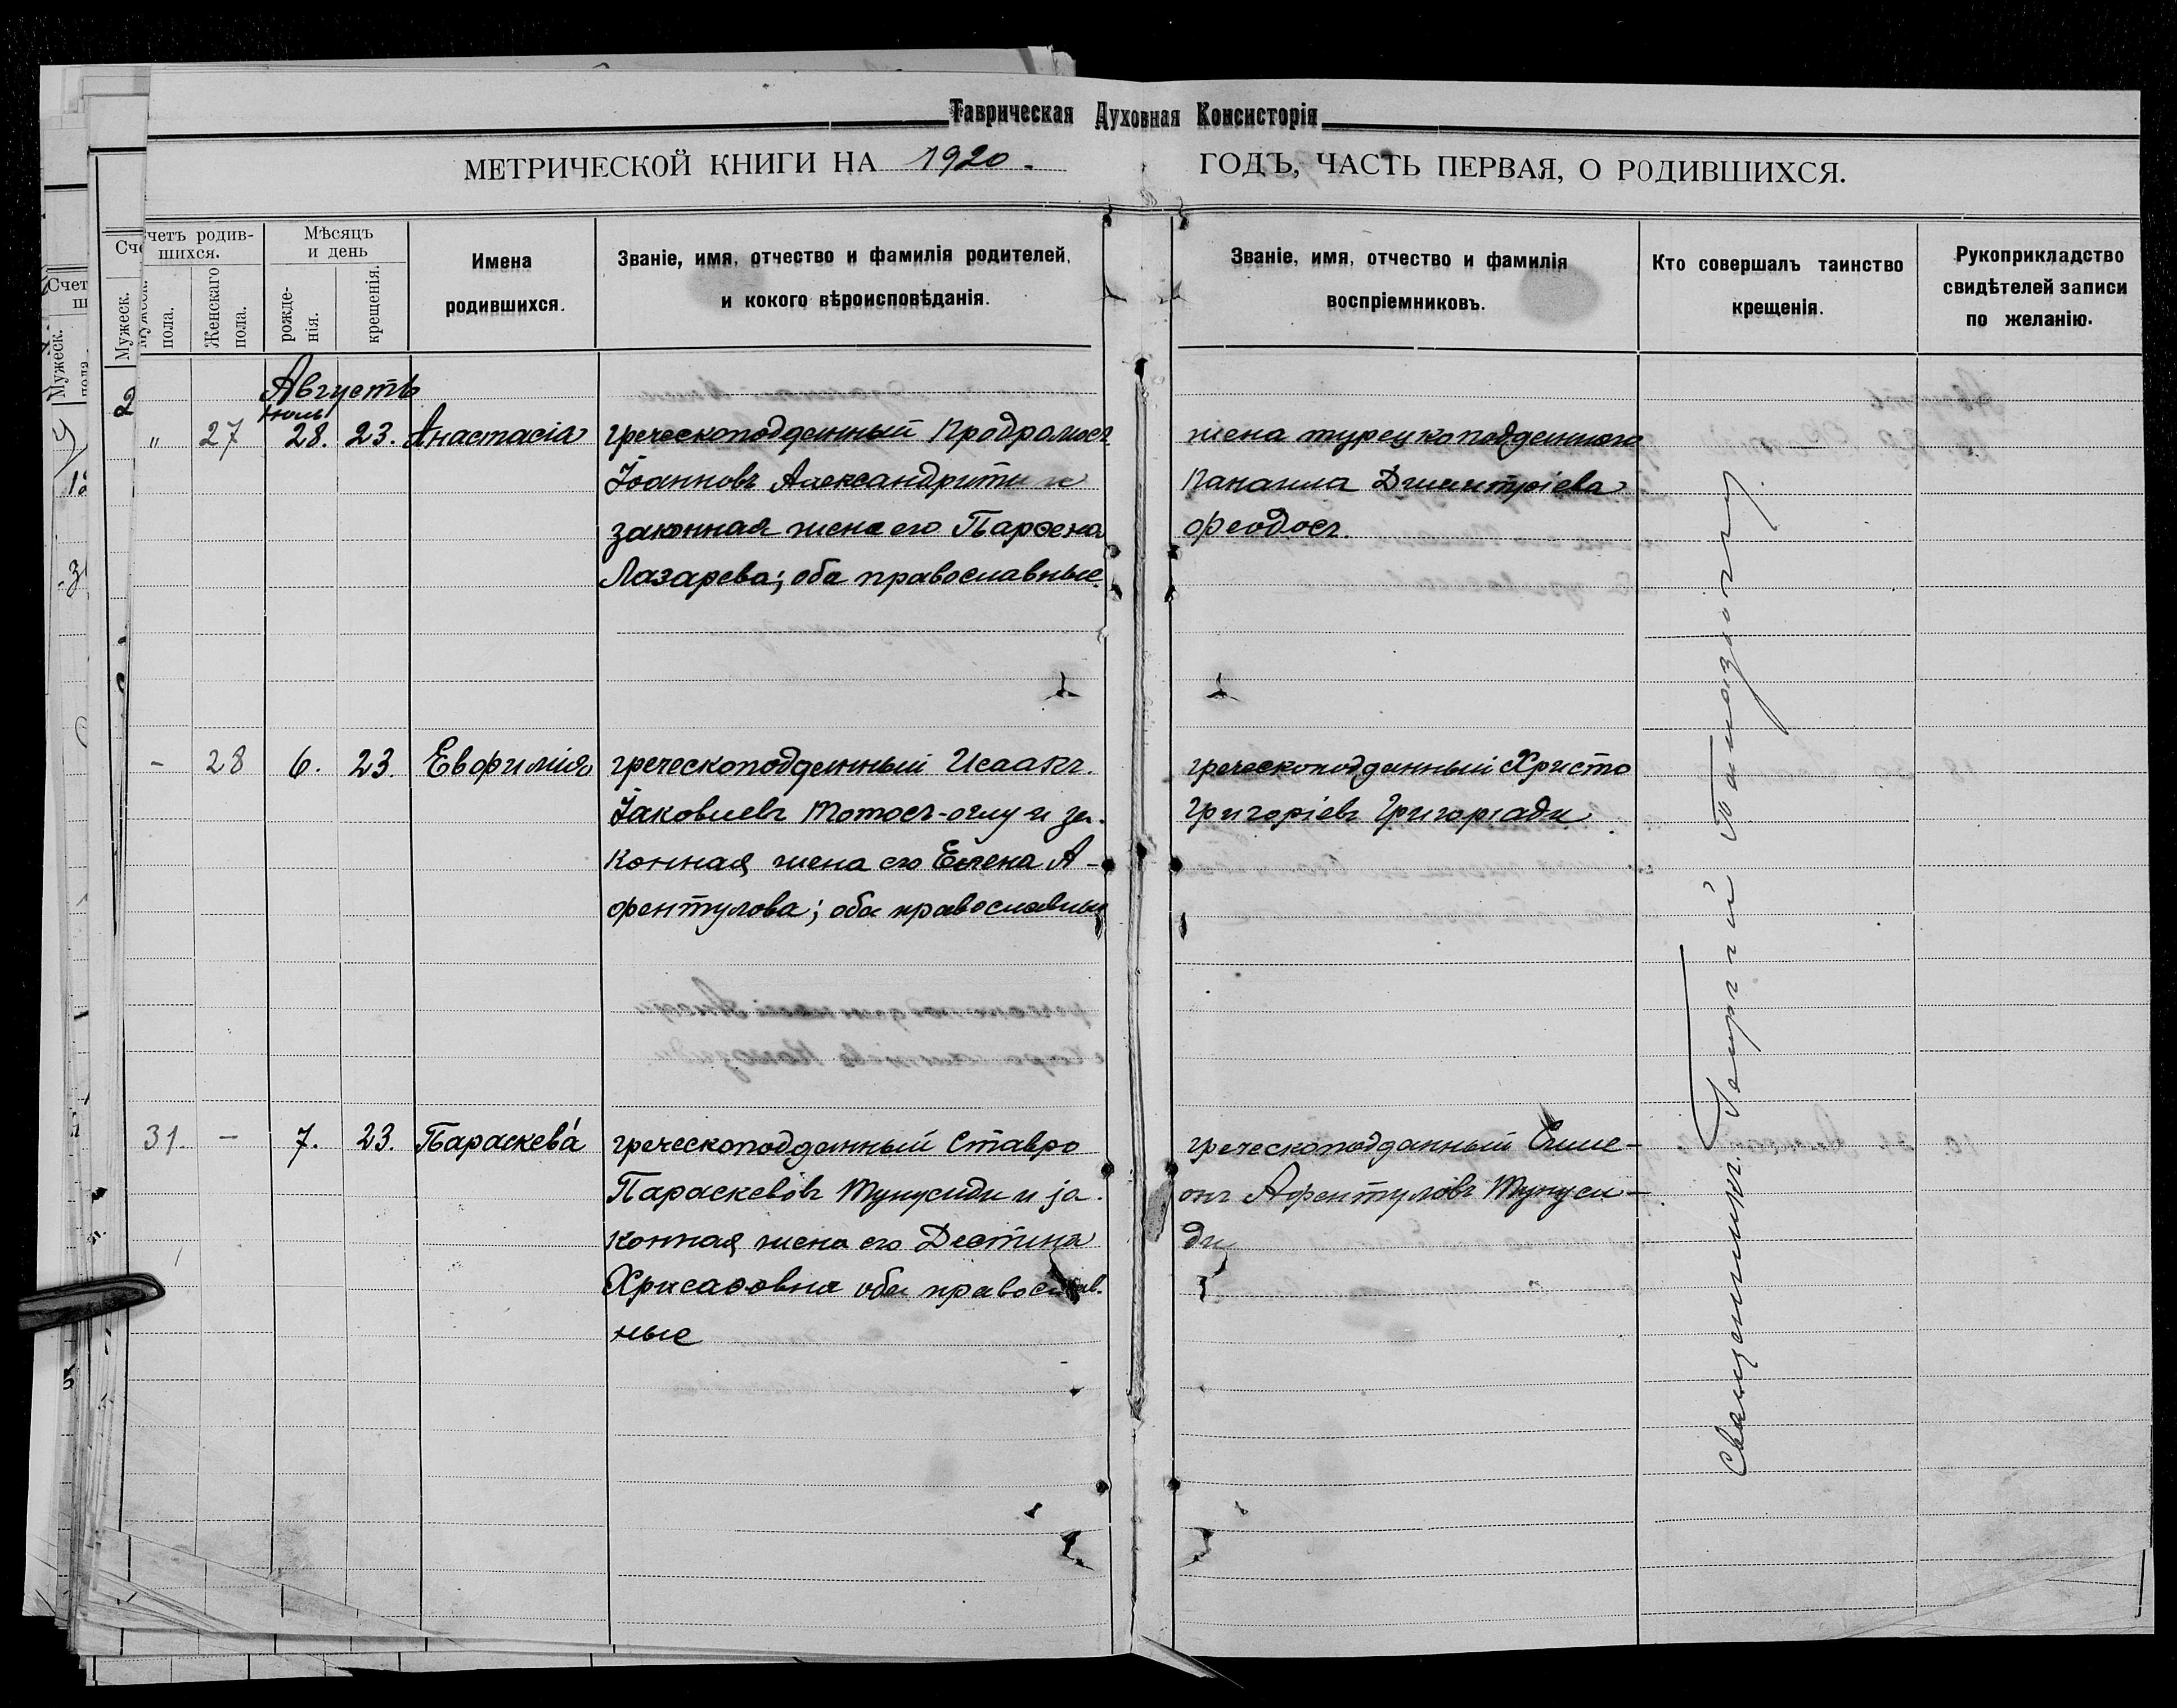 Таврическая Духовная Консисторія
МЕТРИЧЕСКОЙ КНИГИ НА 1920. ГОДЪ, ЧАСТЬ ПЕРВАЯ, О РОДИВШИХСЯ.
Счетъ родив-
шихся.
Мужеск. пола.
Женскаго пола.
Мѣсяцъ
и день
рожде-
нія.
крещенія.
Имена
родившихся.
Званіе, имя, отчество и фамилія родителей,
и кокого вѣроисповѣданія.
Званіе, имя, отчество и фамилія
воспріемниковъ.
Кто совершалъ таинство
крещенія.
Рукоприкладство
свидѣтелей записи
по желанію.
Августъ
Июль
" 27 28. 23. Анастасія
греческоподданный Продромосъ
Іоанновъ Александрити и
законная жена его Парѳена
Лазарева; оба православные.
жена турецкоподданного
Панаила Димитріева
Феодосъ.
- 28 6. 23. Евфимія
греческоподданный Исаакъ.
Іаковлевъ Тотосъ-оглу и за-
конная жена его Елена А-
фентулова; оба православные
греческоподданный Христо
Григоріевъ Григоріади
31. - 7. 23. Параскева́
греческоподданный Ставро
Параскевовъ Тунусиди и за-
конная жена его Деспина
Хрисафовна оба православ-
ные
греческоподданный Симе-
онъ Афентуловъ Тунуси-
ди
Священникъ Георгій